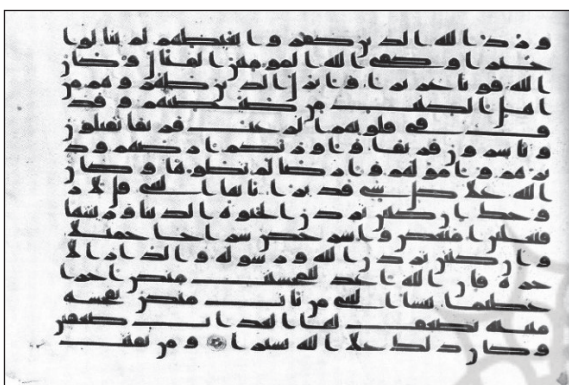 ورد الله الذين كفروا بغيظهم لم ينالوا
خيرا وكفى الله المومنين القتال وكان
الله قويا عزيزا وانزل الذين ظهروهم من
اهل الكتب من صياصيهم وقذ
ف في قلوبهم الرعب فريقا تقتلون
وتاسرون فريقا واورثكم ارضهم ود
يرهم وامولهم وارضا لم تطوها وكان
الله على كل شي قديرا يايها النبي قل لاز
وجك ان كنتن تردن الحيوه الدنيا وزينتها
فتعالين امتعكن واسرحكن سراحا جميلا
وان كنتن تردن الله ورسوله والدار الا
خره فان الله اعد للمحسنت منكن اجرا
عظيما ينسا النبي من يات منكن بفحشه
مبينه يضعف لها العذاب ضعفين
وكان ذلك على الله يسيرا ومن يقنت